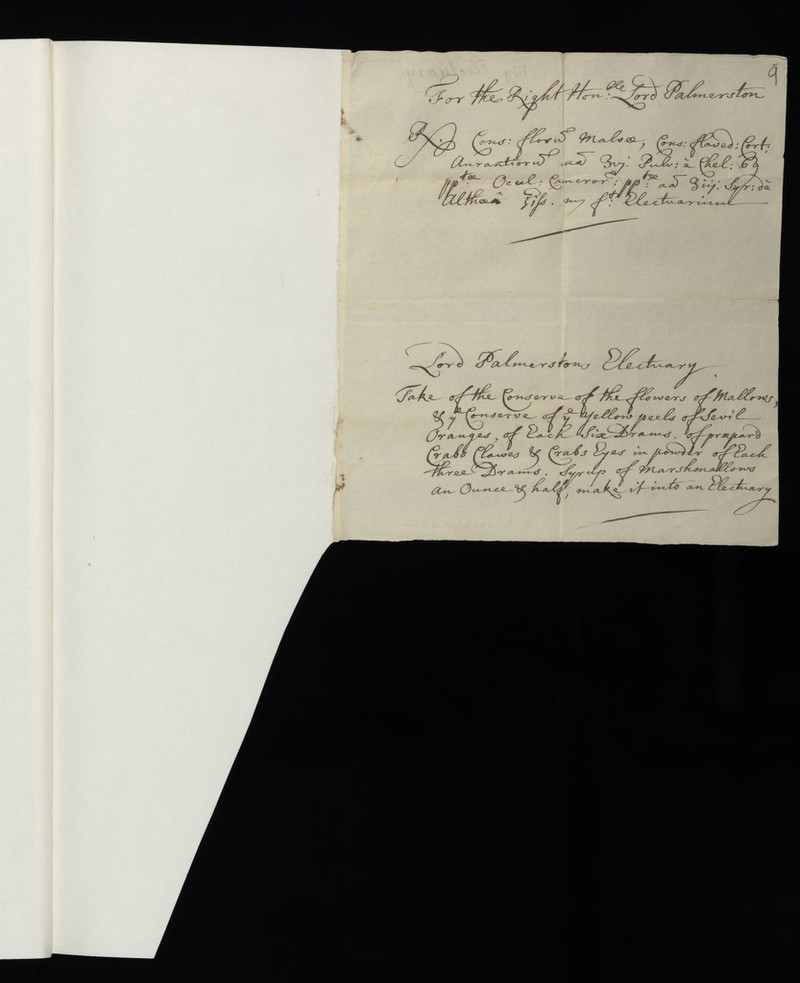 9
For the Right Hon:ble Lord Palmerston
Rx Cons: florū Malvæ, Cons: flaved: Cort:
Aurantiorū aā ʒvj. Pulv: è Chel: 69
pptæ Ocul: Cancror: pptæ aā ʒiij. Syr: de
Althæâ ℥iſs. m f:t Electuarium
Lord Palmerstons Electuary
Take of the Conserve of the flowers of Mallows,
& ye Conserve of ye yellow peels of Sevil
Oranges, of Each Six Drams. of præpard
Crabs Clawes & Crabs Eyes in powder of Each
three Drams. Syrup of Marshmallows
an Ounce & half, make it into an Electuary